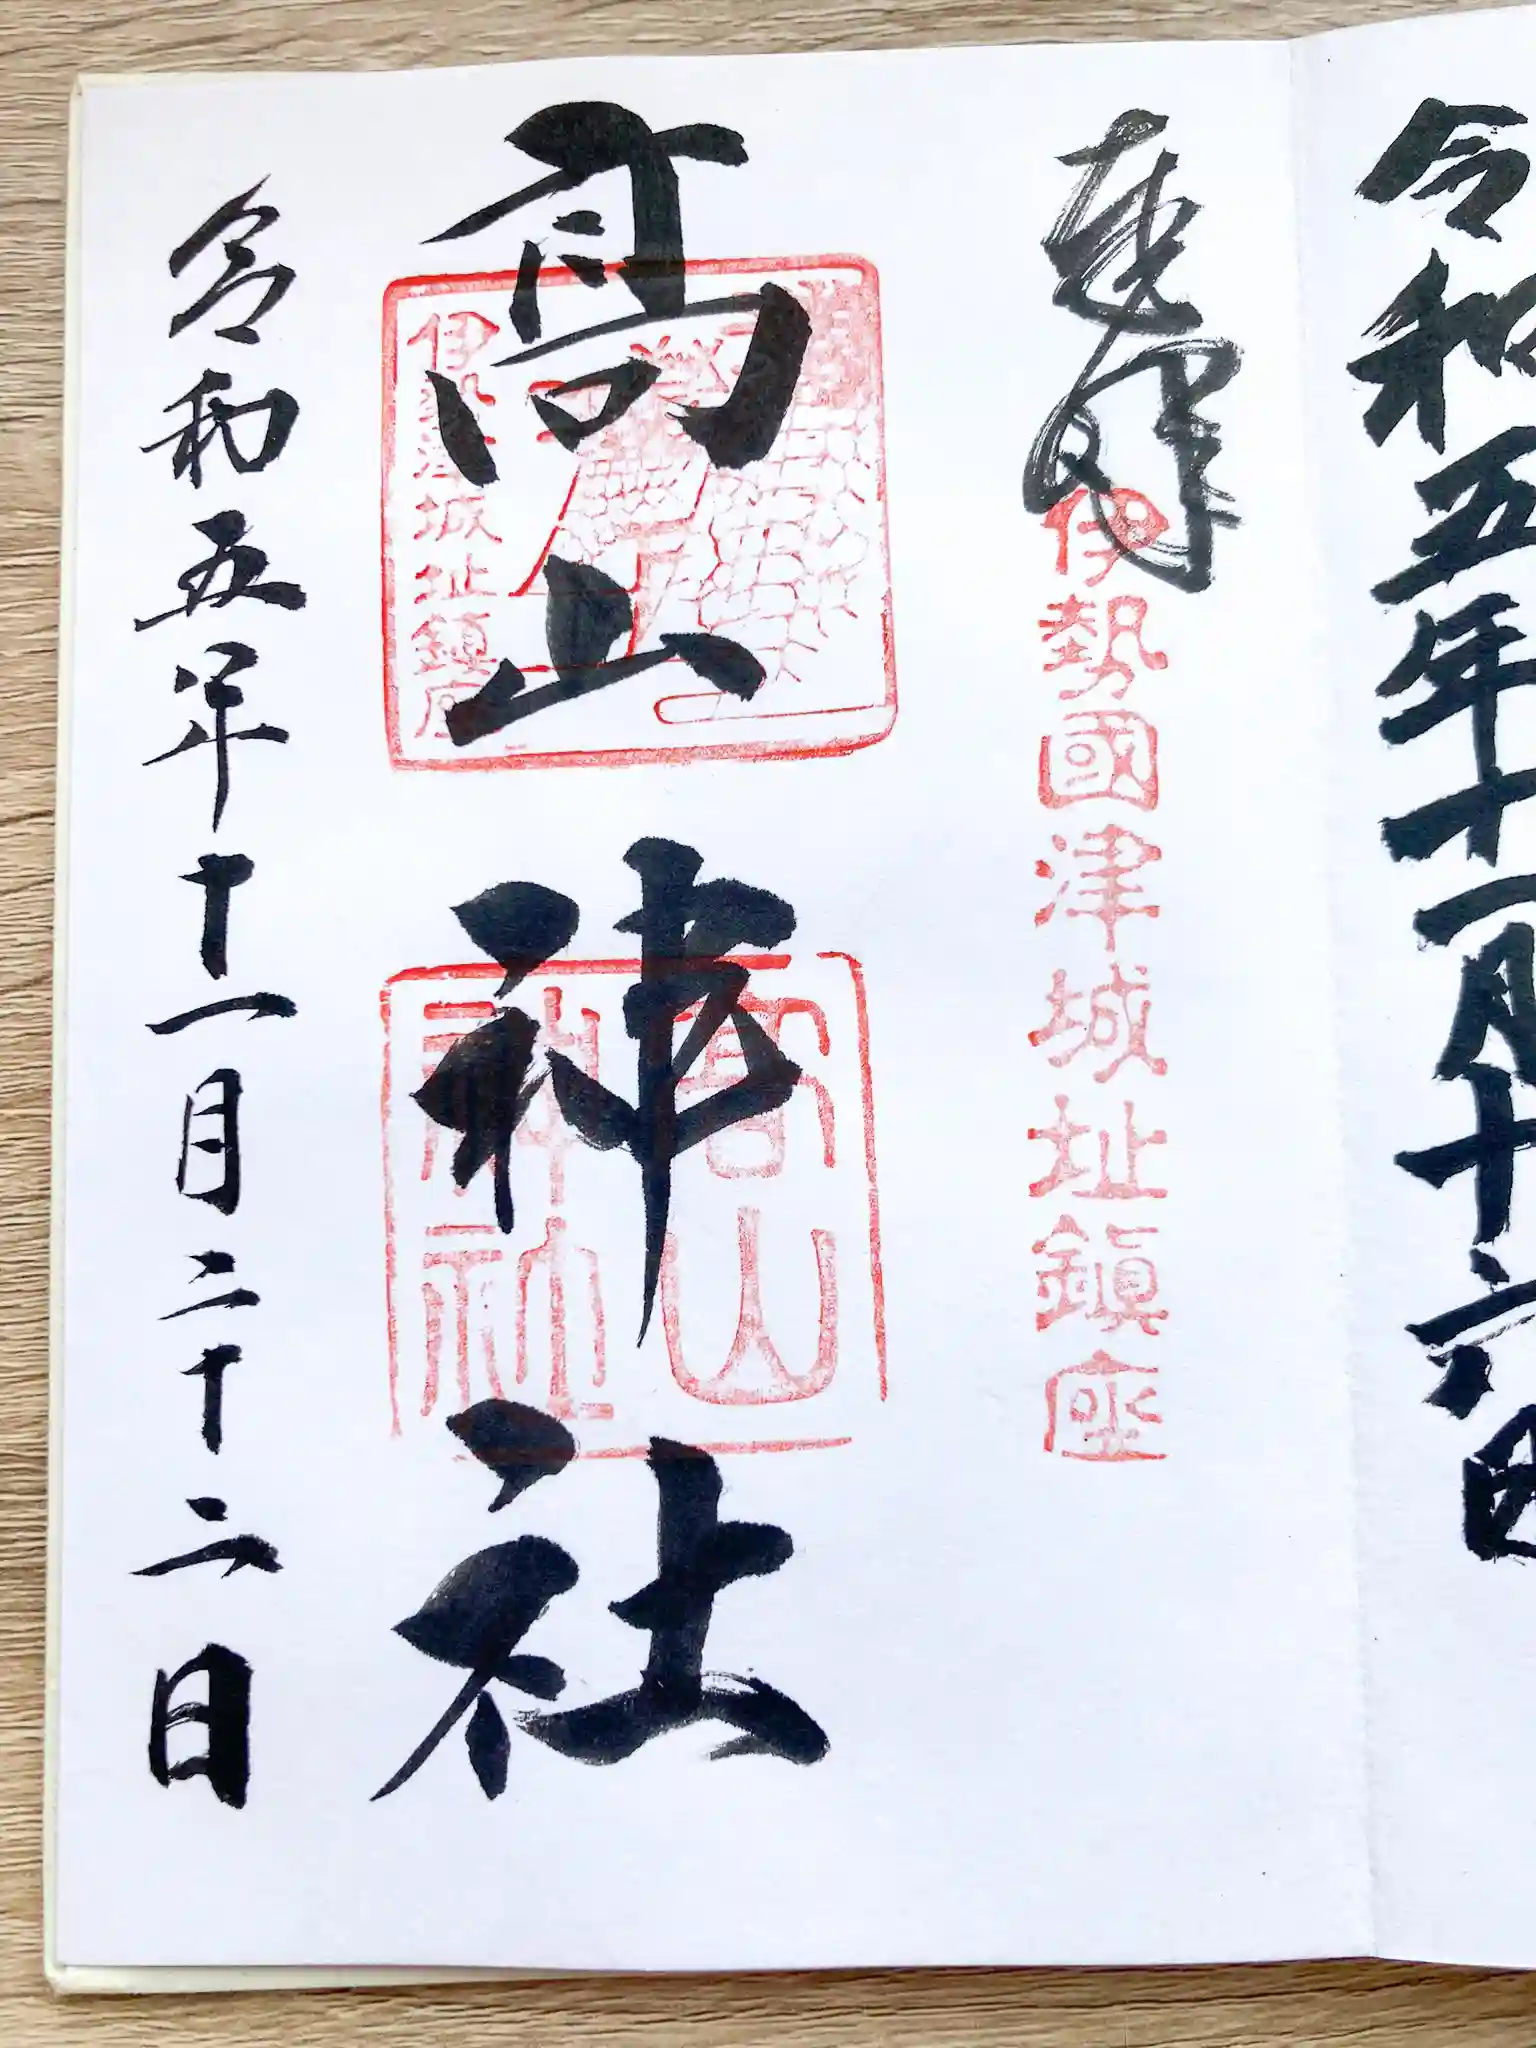 令和五年十一月十六日
奉拝
伊勢國津城址鎮座
高山神社
高山
神社
伊勢津城址鎮座
令和五年十一月二十二日